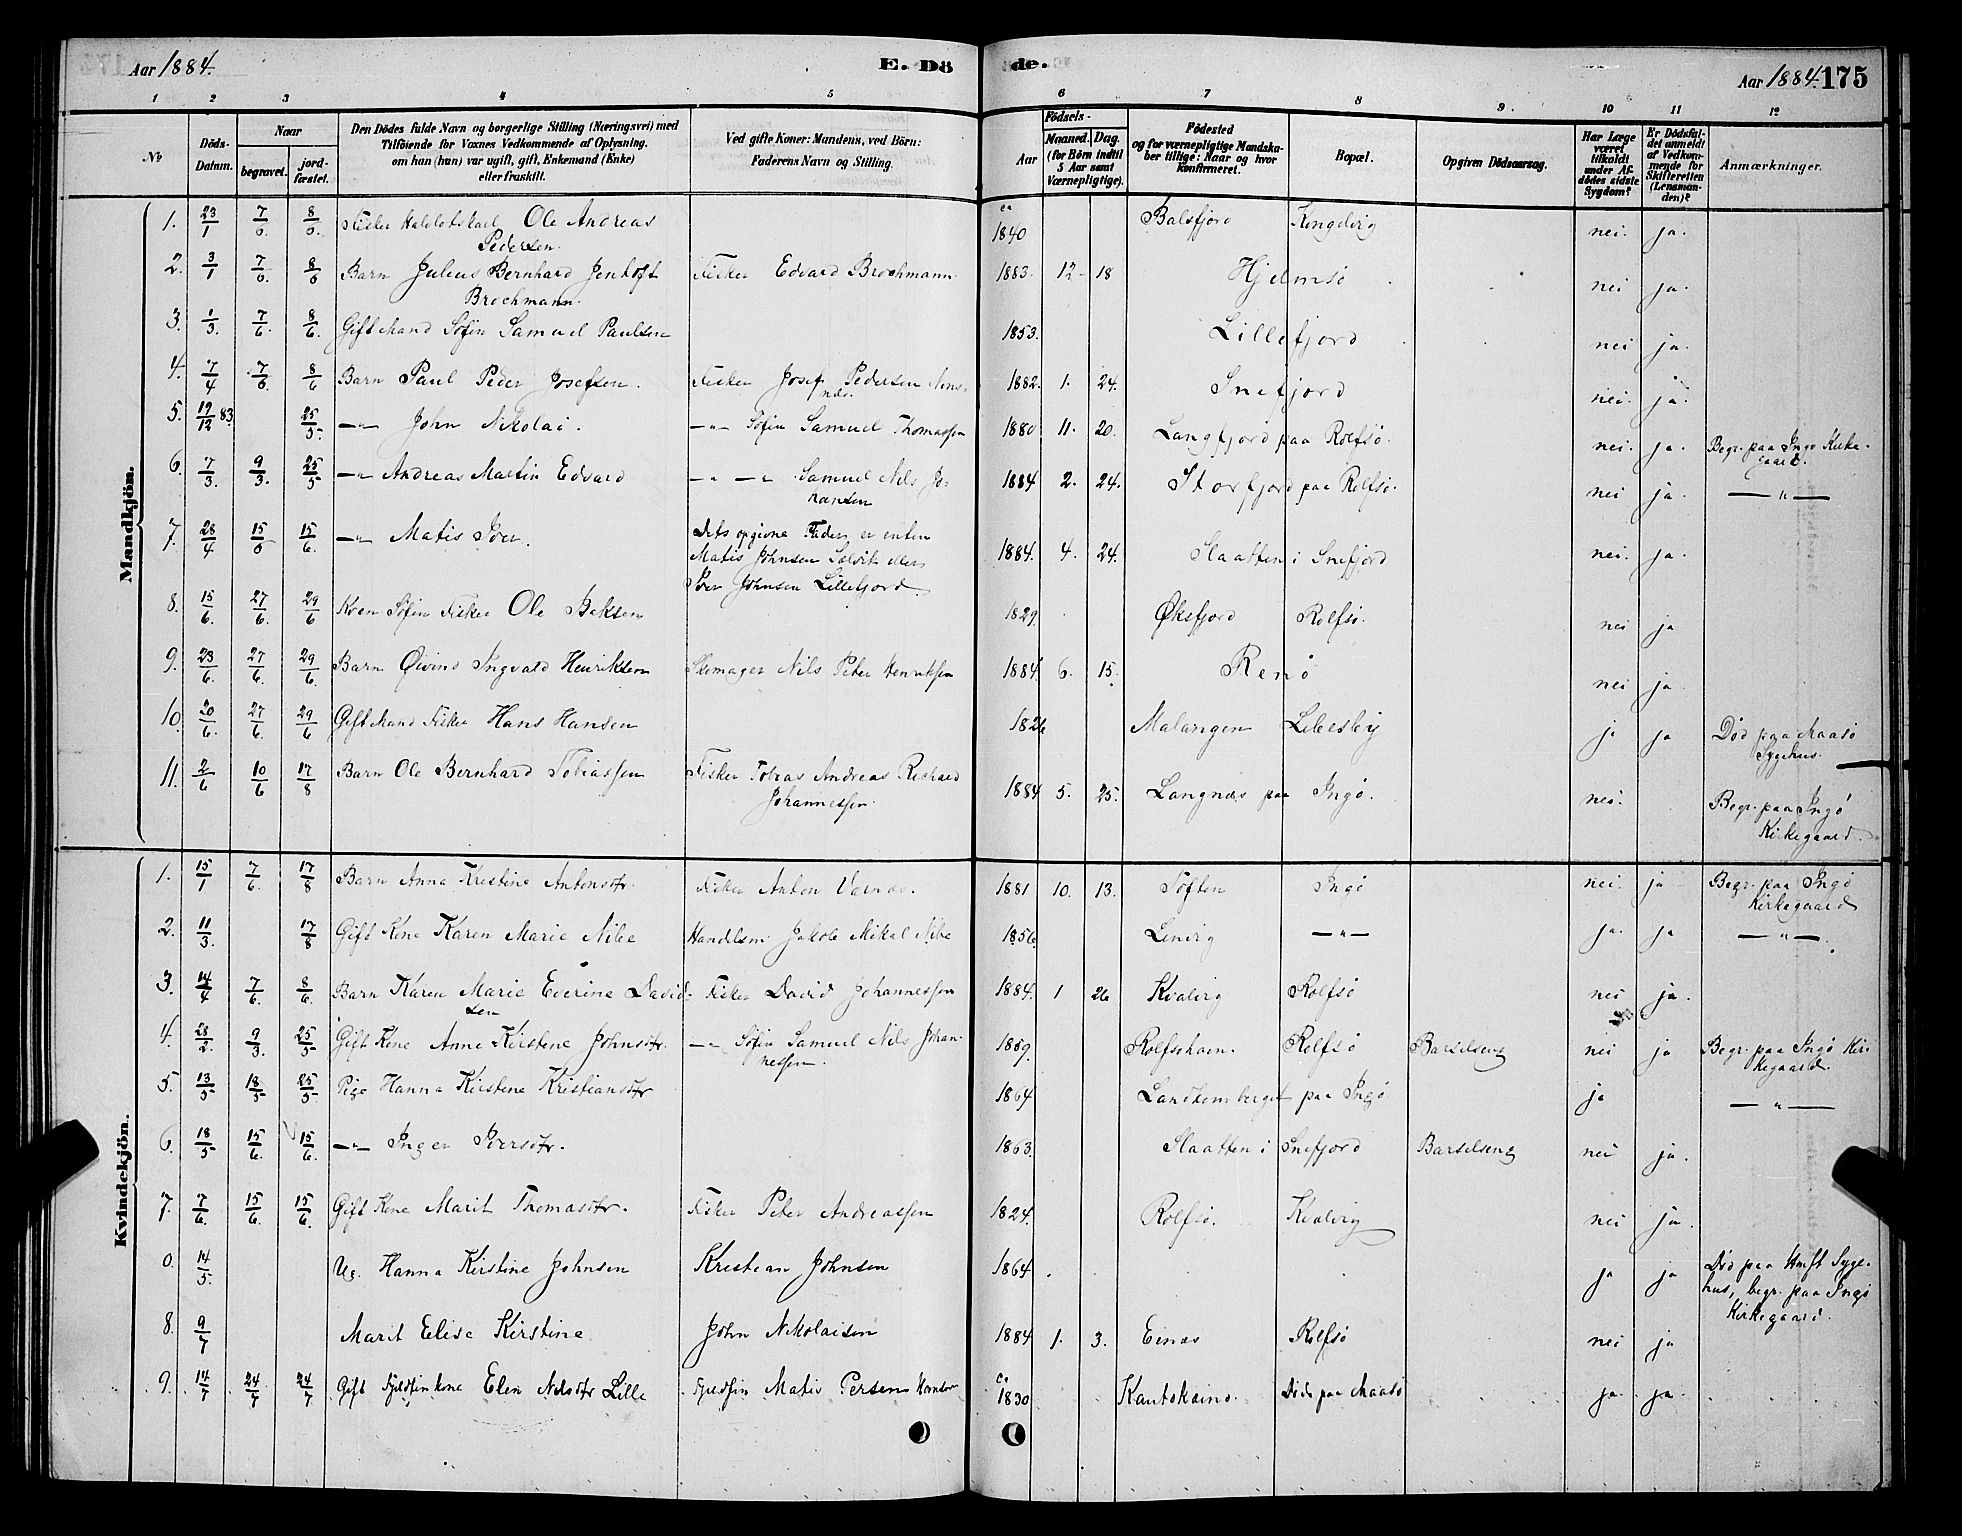 Aar 1884.
E. Dö
de.
Aar 1884. 175
1 2 3 4 5 6 7 8 9. 10 11 12
No
Döds-Datum.
Naar
begravet.
jord-fæstet.
Den Dödes fulde Navn og borgerlige Stilling (Næringsvei) med
Tilföiende for Voxnes Vedkommende af Oplysning.
om han (hun) var ugift, gift, Enkemand (Enke)
eller fraskilt.
Ved gifte Koner: Mandens, ved Börn:
Faderens Navn og Stilling.
Födsels-
Aar
Maaned. Dag.
(for Börn indtil
5 Aar samt
Værnepligtige).
Födested
og for værnepligtige Mandska-
ber tillige: Naar og hvor
konfirmeret.
Bopæl.
Opgiven Dödsaarsag.
Har Læge
været
tilkaldt
under Af-
dödes sidste
Sygdom?
Er Dödsfal-
det anmeldt
af Vedkom-
mende for
Skifteretten
(Lensman-
den)?
Anmærkninger.
Mandkjön.
1. 23/1 7/6 8/6 Fisker Ole Andreas Pedersen. ca 1840 Balsfjord nei. ja.
2. 3/1 7/6 8/6 Barn Julius Bernhard Jentoft Brochmann. Fisker Edvard Brochmann 1883. 12 18 Hjelmsö nei ja.
3. 1/3. 7/6. 8/6. Gift Mand Söfin Samuel Paulsen 1853. Lillefjord nei ja.
4. 7/4 7/6 8/6 Barn Paul Peder Josefsen. Fisker Josef Pedersen 1882. 1. 24. Snefjord nei. ja.
5. 19/12 83 25/5. —"— John Nikolai. —"— Söfin Samuel Thomassen 1880 11. 20. Langfjord paa Rolfsö. nei. ja. Begr. paa Ingö Kirke-
gaard.
6. 7/3. 9/3. 25/5 —"— Andreas Martin Edvard —"— Samuel Nils Jo-
hansen 1884 2. 24. Storfjord paa Rolfsö. nei ja. —"—
7. 28/4 15/6 15/6. —"— Matis Iver. Dets opgivne Fader er enten
Matis Johnsen Selvik eller
Iver Johnsen Lillefjord 1884. 4. 24. Slaatten i Snefjord nei. ja.
8. 15/6. 27/6. 29/6 Kven Söfin Fisker Ole 1829. Øksfjord Rolfsö. nei ja
9. 23/6. 27/6. 29/6. Barn Øivind Ingvald Henriksen Skomager Nils Peter Henriksen 1884 6. 15. Renö nei ja
10. 20/6. 27/6. 29/6 Gift Mand Fisker Hans Hansen 1826 Malangen Lebesby ja ja Död paa Maasö
Sygehus.
11. 2/6 10/6 17/8 Barn Ole Bernhard Tobiassen Fisker Tobias Andreas Richard
Johannessen. 1884 5. 25. Langnæs paa Ingö. nei. Begr. paa Ingö
Kirkegaard.
Kvindekjön.
1. 15/1 7/6. 17/8 Barn Anna Kristine Antonsdtr. Fisker Anton 1881 10. 13. Toften Ingö nei. ja Begr. paa Ingö
Kirkegaard
2. 11/3. 17/8 Gift Kone Karen Marie Nibe Handelsm. Jakob Mikal Nibe 1856. Lenvig —"— ja. ja —"—
3. 14/4 7/6. 8/6. Barn Karen Marie Everine David-
sen Fisker David Johannessen 1884. 1 26 Kvalvig Rolfsö nei ja.
4. 28/2. 9/3. 25/5 Gift Kone Anne Kirstene Johnsdtr. —"— Söfin Samuel Nils Johan-
nessen. Rolfsöhavn. Rolfsö Barselseng nei ja Begr. paa Ingö Kir-
kegaard.
5. 13/5 18/5 25/5. Pige Hanna Kirstene Kristiansdtr 1864 paa Ingö ja —"—
6. 18/5 15/6. 15/6. —"— Inger Iversdtr. 1863. Slaatten i Snefjord Barselseng nei ja.
7. 7/6. 15/6. 15/6. Gift Kone Marit Thomasdtr. Fisker Peter Andreassen 1824. Rolfsö. Kvalvig nei ja.
0. 14/5. Ug. Hanna Kirstine Johnsen Kristian Johnsen 1864 ja ja Död paa Hmft Syge-
hus, begr. paa Ingö
Kirkegaard.
8. 9/7 Marit Elise Kirstine John Nikolaisen 1884 1. 3. Rolfsö nei ja
9. 14/7 24/7 24/7 Gift Fjeldfin kone Elen Nilsdtr Lille Fjeldfin Matis Persen ca 1830 Kautokeino. Död paa Maasö ja. ja.